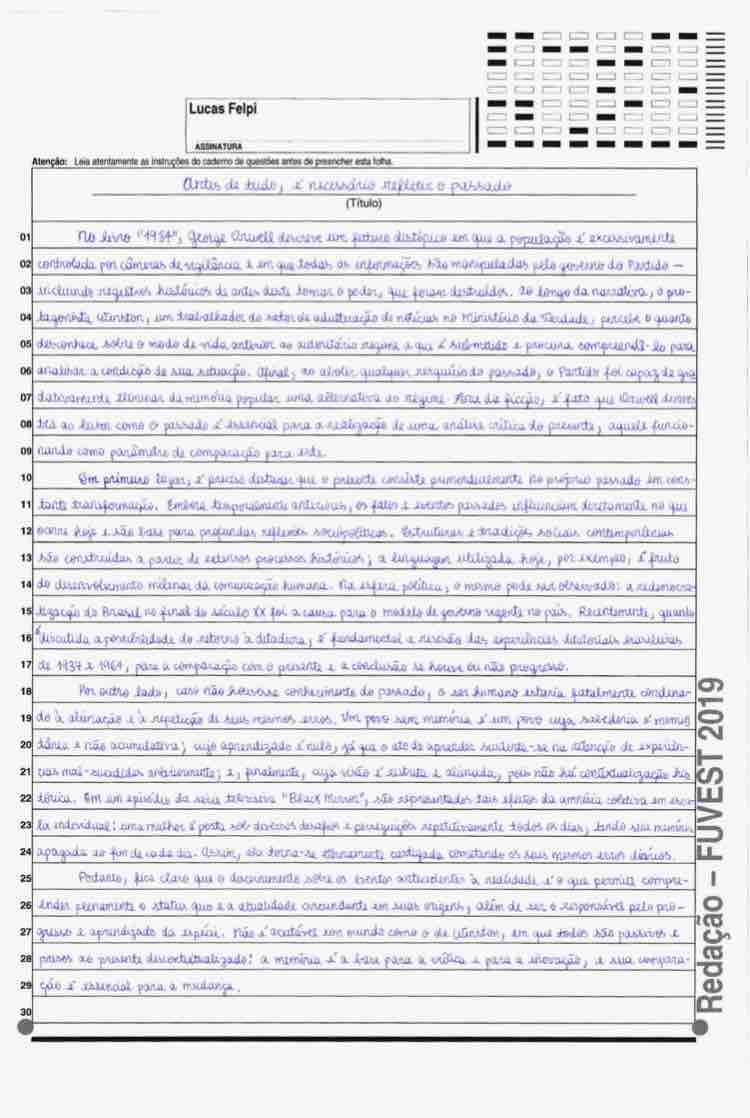 Lucas Felpi
ASSINATURA
Atenção: Leia atentamente as instruções do caderno de questões antes de preencher esta folha.
Antes de tudo, é necessário refletir o passado
(Título)
01 No livro "1984", George Orwell descreve um futuro distópico em que a população é excessivamente
02 controlada por câmeras de vigilância e em que todas as informações são manipuladas pelo governo do Partido —
03 incluindo registros históricos de antes deste tomar o poder, que foram destruídos. Ao longo da narrativa, o pro-
04 tagonista Winston, um trabalhador do setor de adulteração de notícias no Ministério da Verdade, percebe o quanto
05 desconhece sobre o modo de vida anterior ao autoritário regime a que é submetido e procura compreendê-lo para
06 analisar a condição de sua situação. Afinal, ao abolir qualquer resquício do passado, o Partido foi capaz de gra
07 dativamente eliminar da memória popular uma alternativa ao regime. Fora da ficção, é fato que Orwell demons
08 tra ao leitor como o passado é essencial para a realização de uma análise crítica do presente, aquele funcio-
09 nando como parâmetro de comparação para este.
10 Em primeiro lugar, é preciso destacar que o presente consiste primordialmente no próprio passado em cons-
11 tante transformação. Embora temporalmente anteriores, os fatos e eventos passados influenciam diretamente no que
12 ocorre hoje e são base para profundas reflexões sociopolíticas. Estruturas e tradições sociais contemporâneas
13 são construídas a partir de extensos processos históricos; a linguagem utilizada hoje, por exemplo, é fruto
14 do desenvolvimento milenar da comunicação humana. Na esfera política, o mesmo pode ser observado: a redemocra-
15 tização do Brasil no final do século XX foi a causa para o modelo de governo vigente no país. Recentemente, quando
16 discutida a possibilidade do retorno à ditadura, é fundamental a revisão das experiências ditatoriais brasileiras
17 de 1937 e 1964, para a comparação com o presente e a conclusão se houve ou não progresso.
18 Por outro lado, caso não houvesse conhecimento do passado, o ser humano estaria fatalmente condena-
19 do à alienação e à repetição de seus mesmos erros. Um povo sem memória é um povo cuja sabedoria é momen
20 tânea e não acumulativa; cujo aprendizado é nulo, já que o ato de aprender sustenta-se na retenção de experiên-
21 cias mal-sucedidas anteriormente; e, finalmente, cuja visão é estreita e alienada, pois não há contextualização his
22 tórica. Em um episódio da série televisiva "Black Mirror", são representados tais efeitos da amnésia coletiva em esca
23 la individual: uma mulher é posta sob diversos desafios e perseguições repetitivamente todos os dias, tendo sua memória
24 apagada ao fim de cada dia. Assim, ela torna-se eternamente castigada cometendo os seus mesmos erros diários.
25 Portanto, fica claro que o discernimento sobre os eventos antecedentes à realidade é o que permite compre-
26 ender plenamente o status quo e a atualidade circundante em suas origens, além de ser o responsável pelo pro-
27 gresso e aprendizado da espécie. Não é aceitável um mundo como o de Winston, em que todos são passivos e
28 presos ao presente descontextualizado: a memória é a base para a crítica e para a inovação, e sua compara-
29 ção é essencial para a mudança.
30
Redação – FUVEST 2019